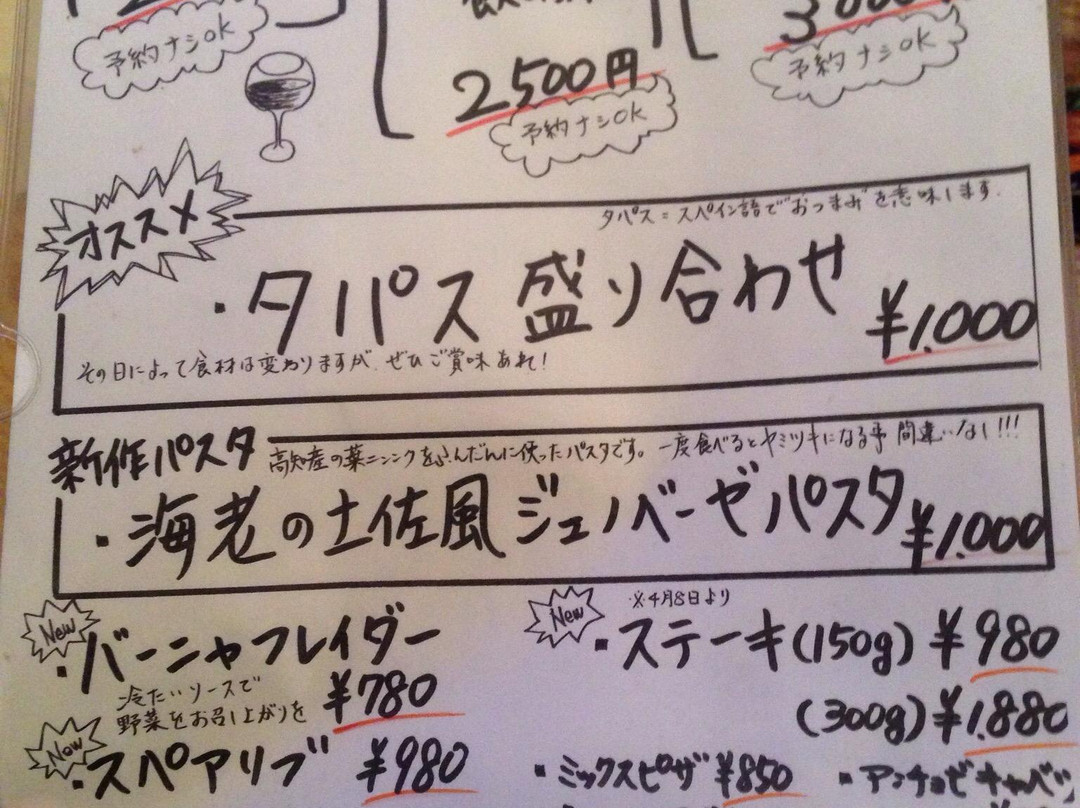 予約ナシOK
2500円
予約ナシOK
予約ナシOK
オススメ
タパス=スペイン語で"おつまみ"を意味します.
・タパス 盛り合わせ
¥1.000
その日によって食材は変わりますが、ぜひご賞味あれ!
新作パスタ
高知産の葉ニンニクをふんだんに使ったパスタです。一度食べるとヤミツキになる事 間違いなし!!!
・海老の土佐風ジェノベーゼパスタ
¥1.000
New
・バーニャフレイダー
冷たいソースで
野菜をお召し上がりを
¥780
New
・スペアリブ ¥980
New
※4月8日より
・ステーキ(150g) ¥980
(300g) ¥1.880
・ミックスピザ ¥850
・アンチョビキャベツ